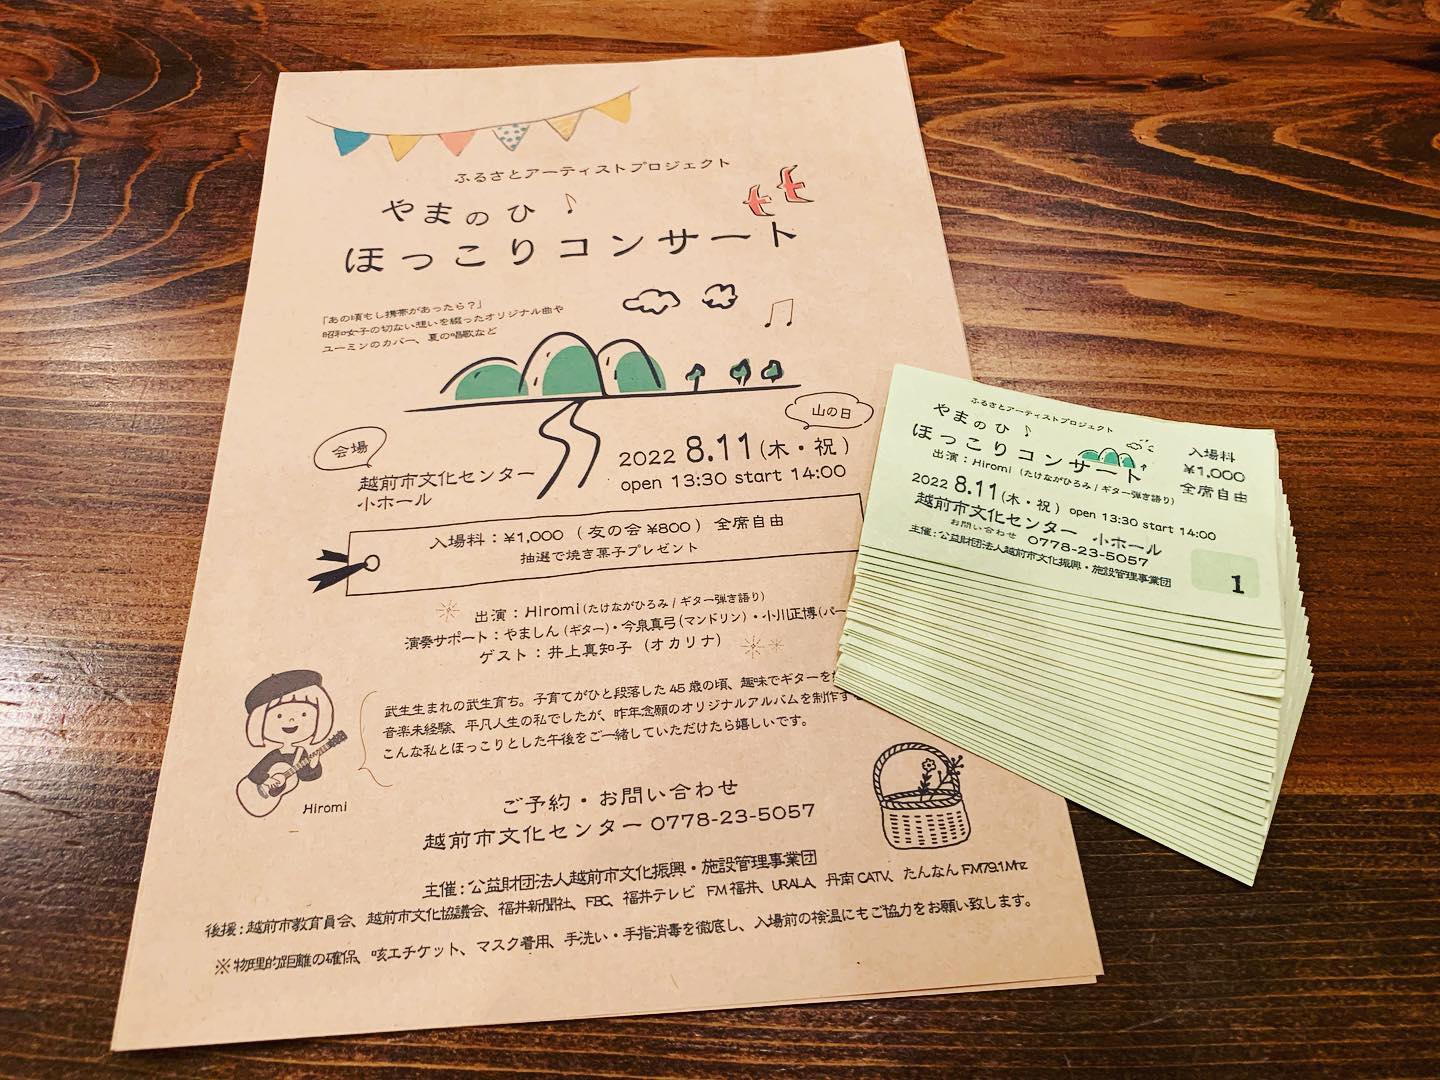 ふるさとアーティストプロジェクト
やまのひ♪
ほっこりコンサート
「あの頃もし携帯があったら？」
昭和女子の切ない想いを綴ったオリジナル曲や
ユーミンのカバー、夏の唱歌など
山の日
会場
越前市文化センター
小ホール
2022 8.11(木・祝)
open 13:30 start 14:00
入場料：¥1,000（友の会¥800）全席自由
抽選で焼き菓子プレゼント
出演：Hiromi(たけながひろみ/ギター弾き語り)
演奏サポート：やましん(ギター)・今泉真弓(マンドリン)・小川正博(パー
ゲスト：井上真知子（オカリナ）
武生生まれの武生育ち。子育てがひと段落した45歳の頃、趣味でギターを
音楽未経験、平凡人生の私でしたが、昨年念願のオリジナルアルバムを制作す
こんな私とほっこりとした午後をご一緒していただけたら嬉しいです。
Hiromi
ご予約・お問い合わせ
越前市文化センター 0778-23-5057
主催：公益財団法人越前市文化振興・施設管理事業団
後援：越前市教育員会、越前市文化協議会、福井新聞社、FBC、福井テレビ FM福井、URALA、丹南CATV、たんなんFM79.1Mhz
※物理的距離の確保、咳エチケット、マスク着用、手洗い・手指消毒を徹底し、入場前の検温にもご協力をお願い致します。
ふるさとアーティストプロジェクト
やまのひ♪
ほっこりコンサート
出演：Hiromi（たけながひろみ/ギター弾き語り）
入場料
¥1,000
全席自由
2022 8.11(木・祝) open 13:30 start 14:00
越前市文化センター 小ホール
お問い合わせ 0778-23-5057
主催：公益財団法人越前市文化振興・施設管理事業団
1